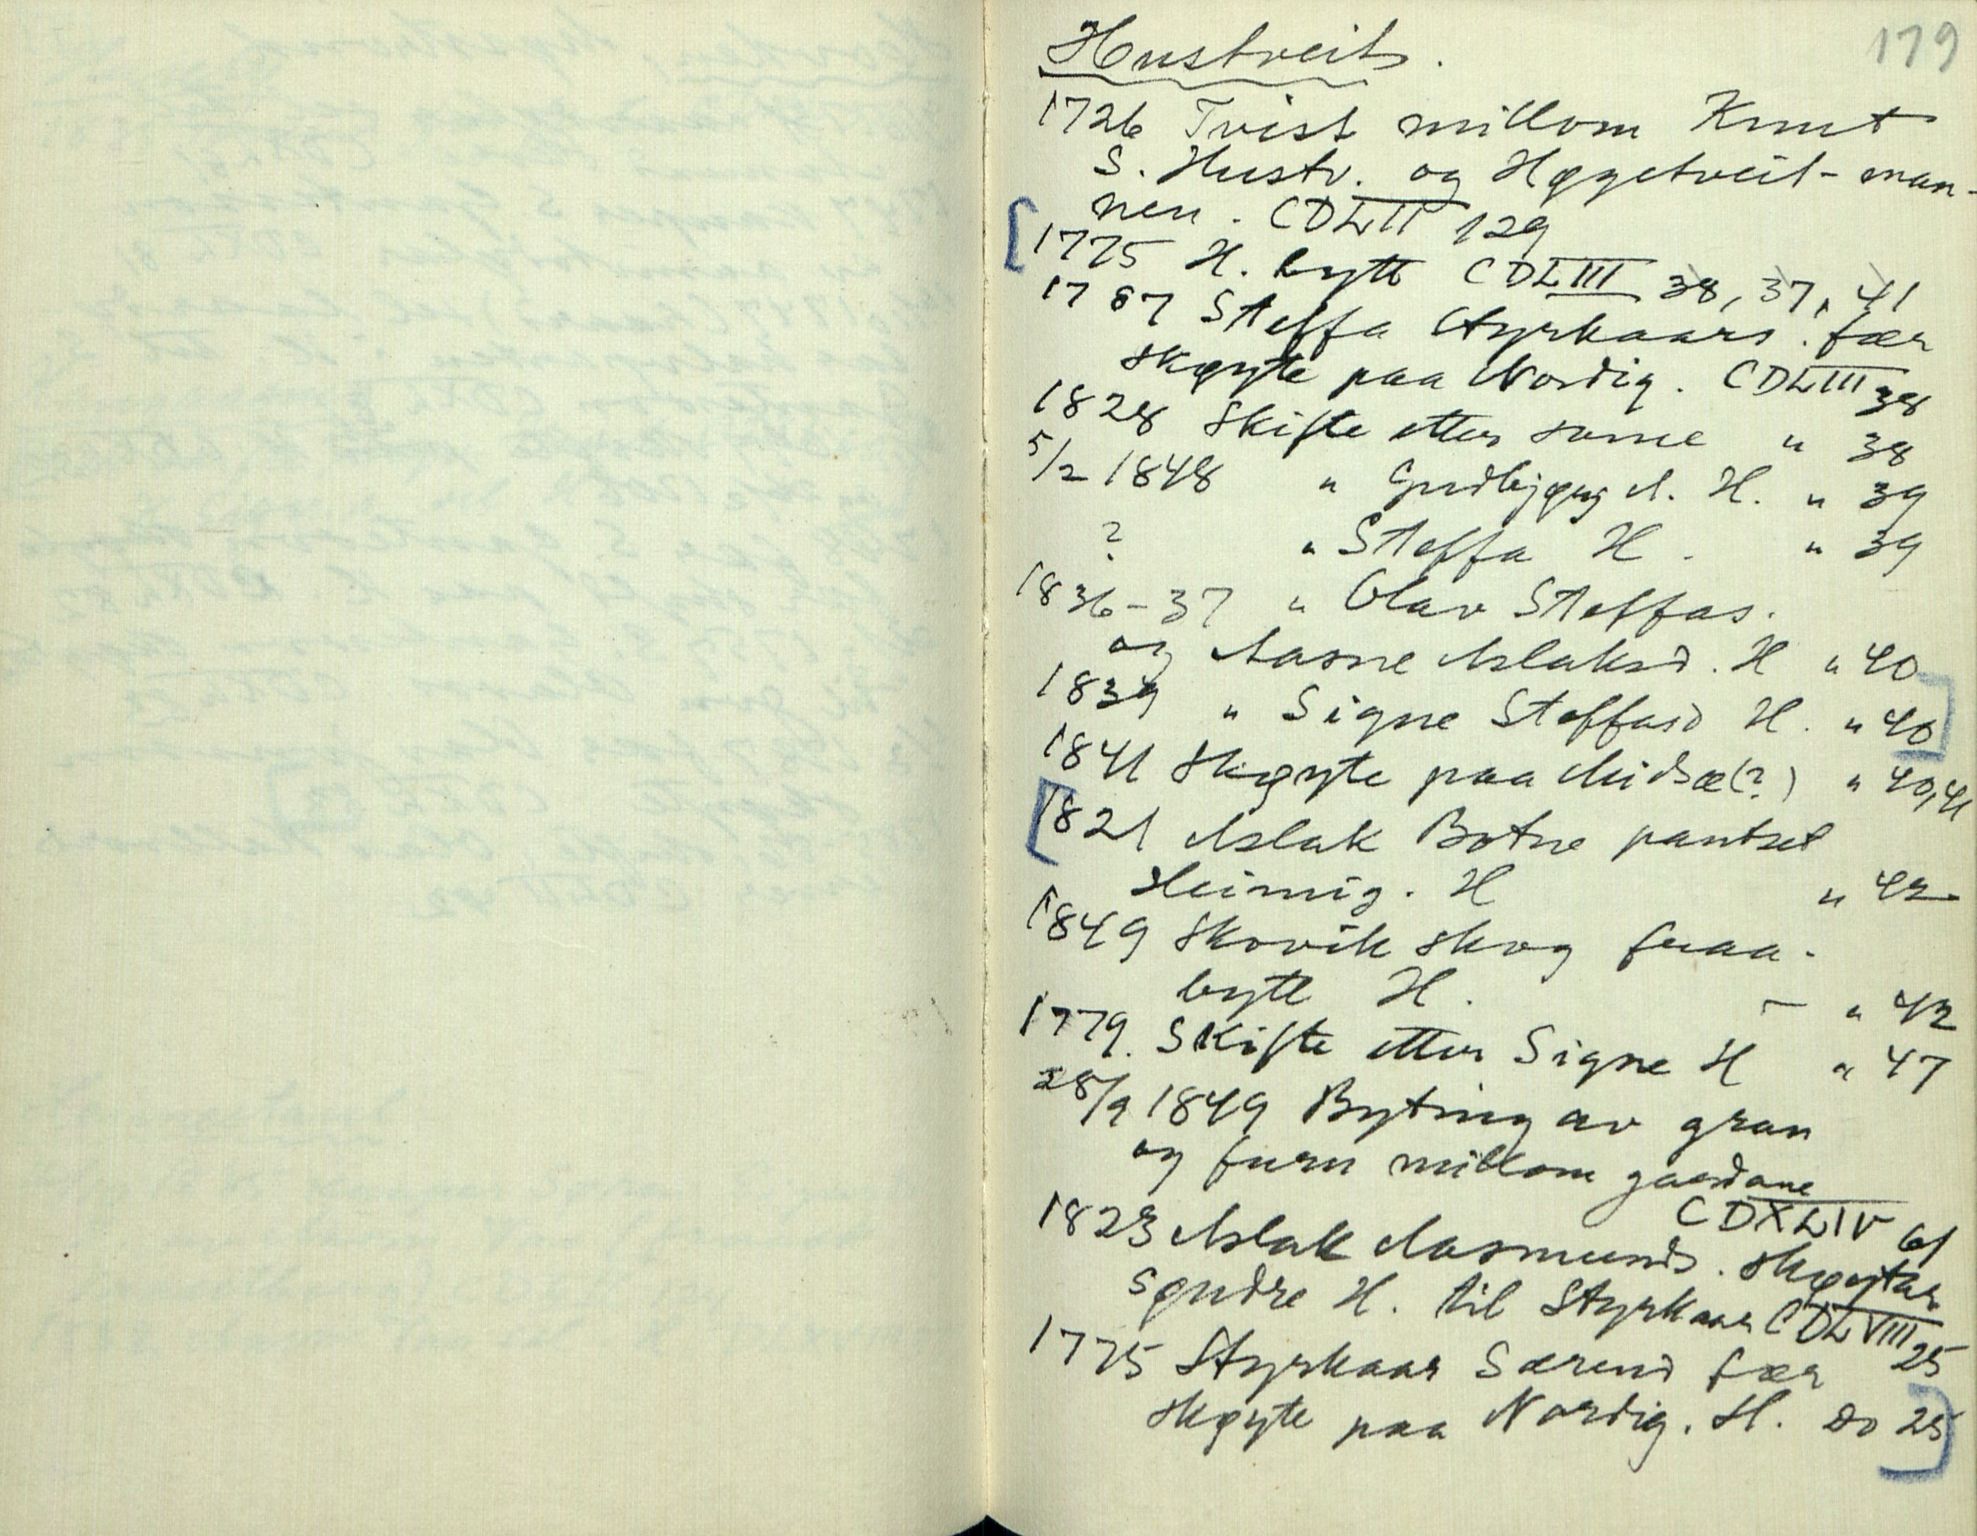 179
Hustveit.
1726 Tvist millom Knut
S. Hustv. og Høgetveit-man-
nen. CDLII 129
[1775 H. bytt CDLIII 38, 37, 41
1787 Steffa Styrkaars. fær
skøyte paa Nordig. CDLIII 38
1828 Skifte etter same " 38
5/2 1848 " Gudbjørg A. H. " 39
? " Steffa H. " 39
1836-37 " Olav Steffas.
og Aasne Aslaksd. H " 40
1839 " Signe Steffasd H. " 40]
1841 Skøyte paa Midsæ(?) " 40,41
[1821 Aslak Botne pantset
Heimig. H " 42
1849 Skovik skog fraa-
bytt H. — " 42
1779. Skifte etter Signe H " 47
28/9 1849 Byting av gran
og furu millom gardane
CDXLIV 61
1823 Aslak Aasmunds. skøytar
søndre H. til Styrkaar CDLVIII 25
1775 Styrkaar Særend fær
skøyte paa Nordig. H. Do 25]